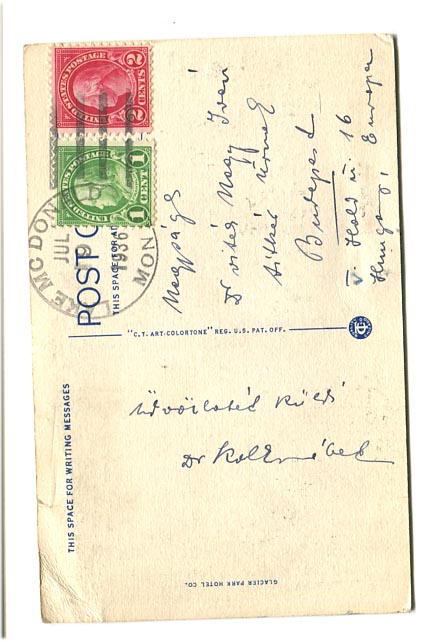 UNITED STATES POSTAGE
2 CENTS 2
UNITED STATES POSTAGE
1 CENT 1
LAKE MCDON
JUL
1936
MON
POST C
THIS SPACE FOR AD
Nagyságos
Dr vitéz Nagy Iván
titkár úrnak
Budapest
V. Hold u. 16
Hungary, Europa
"C.T. ART-COLORTONE" REG. U.S. PAT. OFF.
THIS SPACE FOR WRITING MESSAGES
Üdvözletét küldi
Dr
GLACIER PARK HOTEL CO.